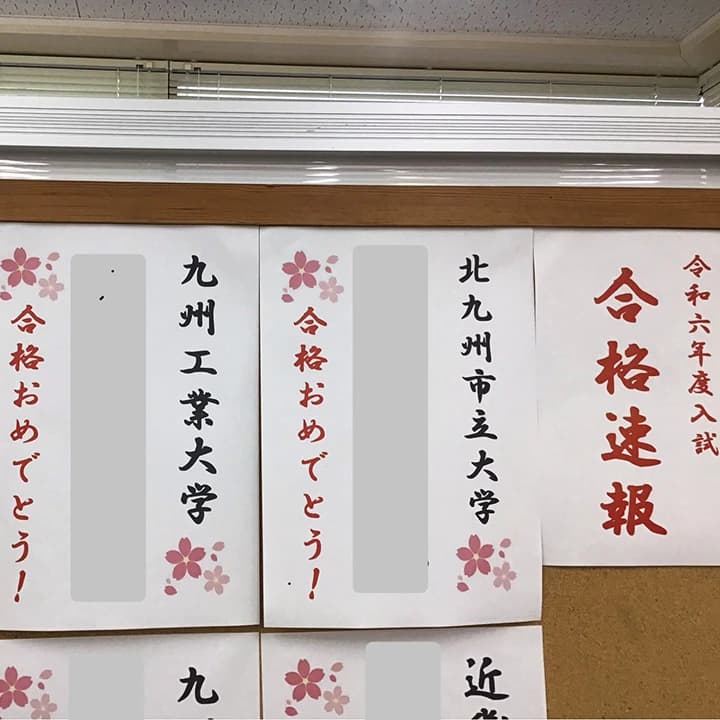 令和六年度入試
合格速報
北九州市立大学
合格おめでとう！
九州工業大学
合格おめでとう！
近
九